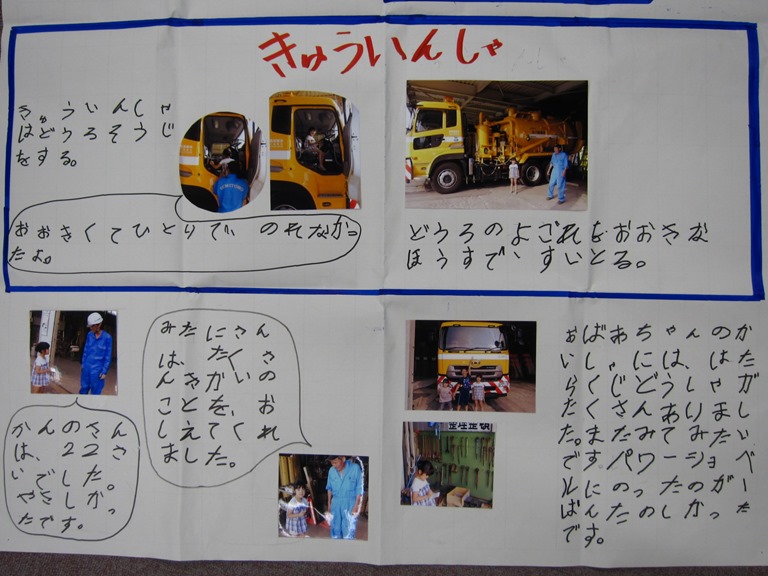 きゅういんしゃ
きゅういんしゃ
はどうろそうじ
をする。
おおきくてひとりで、のれなかっ
たよ。
どうろのよごれをおおきな
ほうすで、すいとる。
かんのさん
は、22さ
いでした。
やさしかっ
たです。
みたにさん
は、たくさ
んきかいの
ことを、お
しえてくれ
ました。
整理整頓
おばあちゃんのか
いしゃには、はた
らくじどうしゃが
たくさんありまし
た。またみてみたい
です。パワーショベ
ルにのったのがー
ばんたのしかった
です。